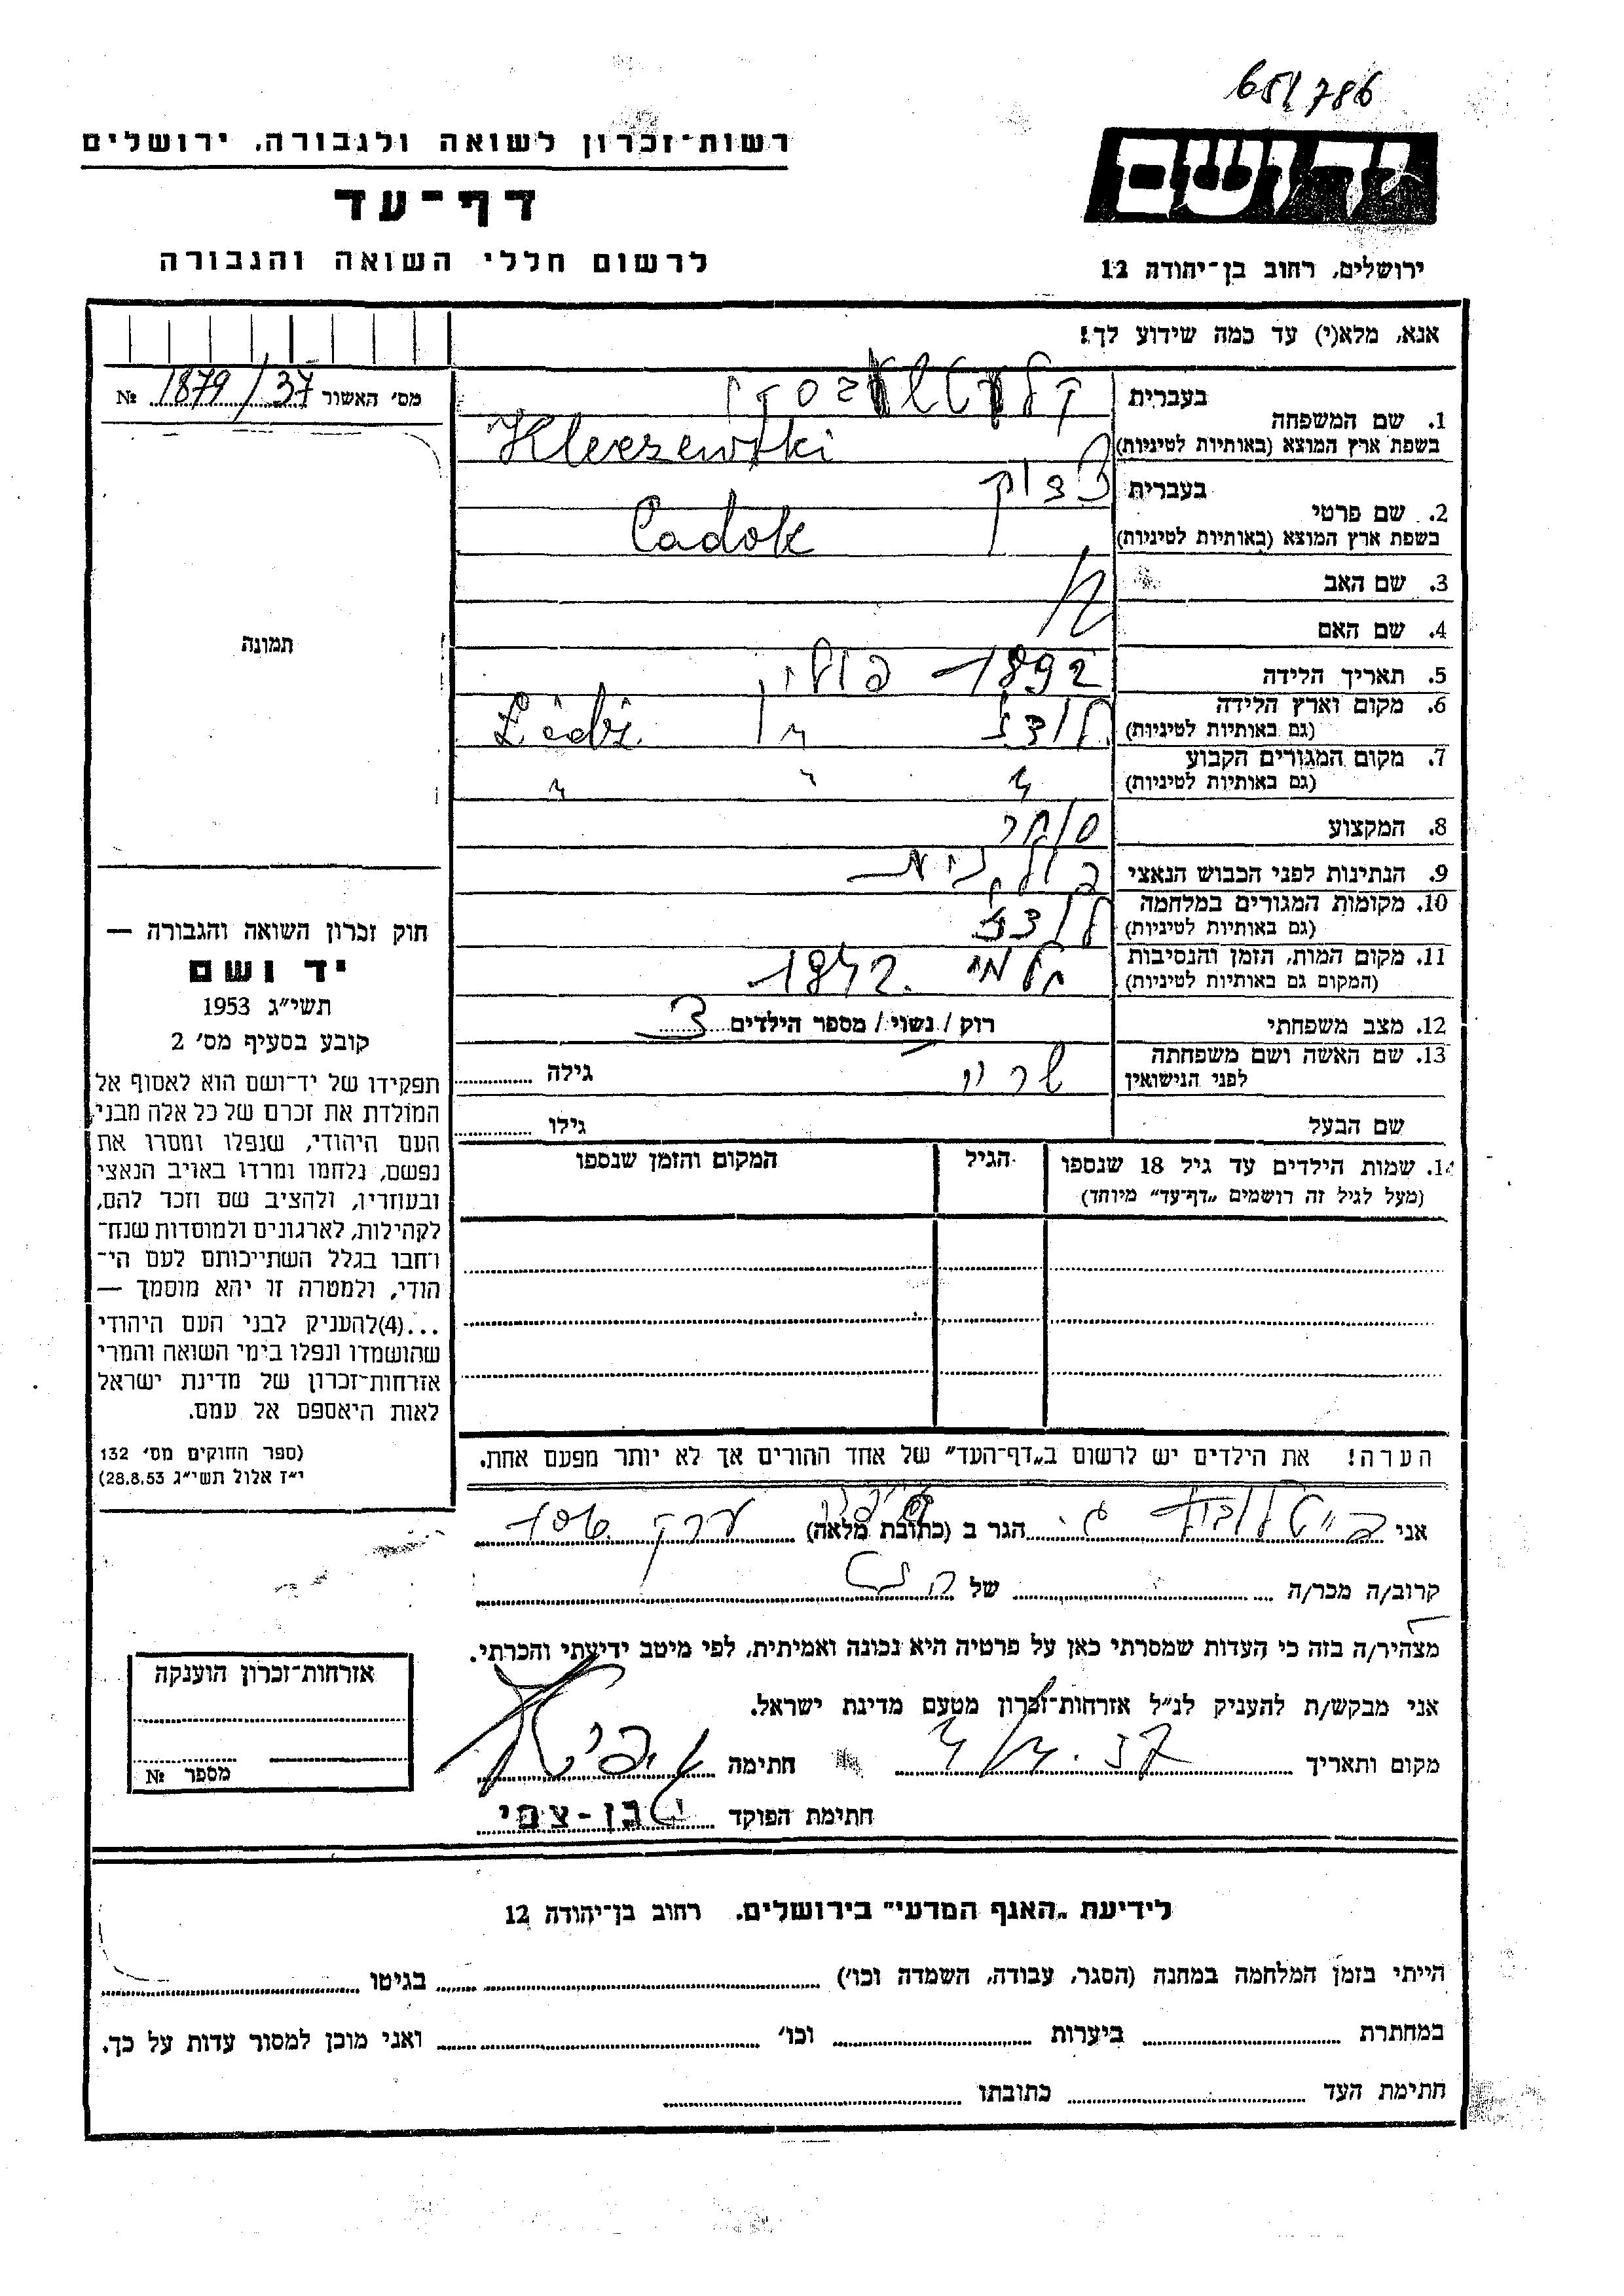 651786
רשות-זכרון לשואה ולגבורה, ירושלים
דף-עד
לרשום חללי השואה והגבורה
יד ושם
ירושלים, רחוב בן-יהודה 12
אנא, מלא(י) עד כמה שידוע לך!
מס׳ האשור 1879/37 №
תמונה
חוק זכרון השואה והגבורה —
יד ושם
תשי״ג 1953
קובע בסעיף מס׳ 2
תפקידו של יד-ושם הוא לאסוף אל
המולדת את זכרם של כל אלה מבני
העם היהודי, שנפלו ומסרו את
נפשם, נלחמו ומרדו באויב הנאצי
ובעוזריו, ולהציב שם וזכר להם,
לקהילות, לארגונים ולמוסדות שנח-
רחבו בגלל השתייכותם לעם הי-
הודי, ולמטרה זו יהא מוסמך —
...(4)להעניק לבני העם היהודי
שהושמדו ונפלו בימי השואה והמרי
אזרחות-זכרון של מדינת ישראל
לאות היאספם אל עמם.
(ספר החוקים מס׳ 132
י״ז אלול תשי״ג 28.8.53)
בעברית
1. שם המשפחה
בשפת ארץ המוצא (באותיות לטיניות) Kleczewski
בעברית צדוק
2. שם פרטי
בשפת ארץ המוצא (באותיות לטיניות) Cadok
3. שם האב
4. שם האם
5. תאריך הלידה 1892 פולין
6. מקום וארץ הלידה לודז Łódź
(גם באותיות לטיניות)
7. מקום המגורים הקבוע " " "
(גם באותיות לטיניות)
8. המקצוע סוחר
9. הנתינות לפני הכבוש הנאצי פולנית
10. מקומות המגורים במלחמה לודז
(גם באותיות לטיניות)
11. מקום המות, הזמן והנסיבות חלמי 1942
(המקום גם באותיות לטיניות)
12. מצב משפחתי רוק / נשוי / מספר הילדים 3
13. שם האשה ושם משפחתה גילה
לפני הנישואין
שם הבעל גילו
14. שמות הילדים עד גיל 18 שנספו הגיל המקום והזמן שנספו
(מעל לגיל זה רושמים „דף-עד״ מיוחד)
הערה! את הילדים יש לרשום ב„דף-העד״ של אחד ההורים אך לא יותר מפעם אחת.
אני הגר ב (כתובת מלאה)
קרוב/ה מכר/ה של
מצהיר/ה בזה כי העדות שמסרתי כאן על פרטיה היא נכונה ואמיתית, לפי מיטב ידיעתי והכרתי.
אני מבקש/ת להעניק לנ״ל אזרחות-זכרון מטעם מדינת ישראל.
מקום ותאריך 4/4.57 חתימה
חתימת הפוקד י. בן-צמי
אזרחות-זכרון הוענקה
מספר №
לידיעת „האגף המדעי״ בירושלים, רחוב בן-יהודה 12
הייתי בזמן המלחמה במחנה (הסגר, עבודה, השמדה וכו׳) בגיטו
במחתרת ביערות וכו׳ ואני מוכן למסור עדות על כך.
חתימת העד כתובתו